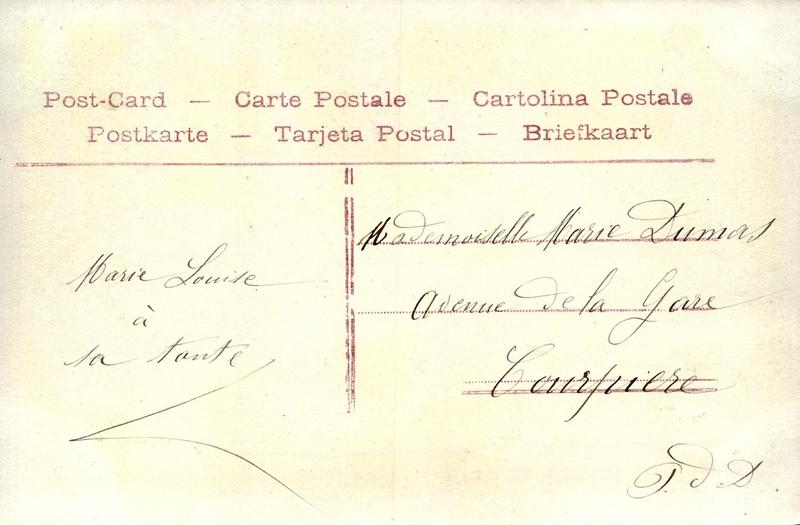 Post-Card — Carte Postale — Cartolina Postale
Postkarte — Tarjeta Postal — Briefkaart
Marie Louise
à
sa tante
Mademoiselle Marie Dumas
Avenue de la Gare
Courpiere
P. d D